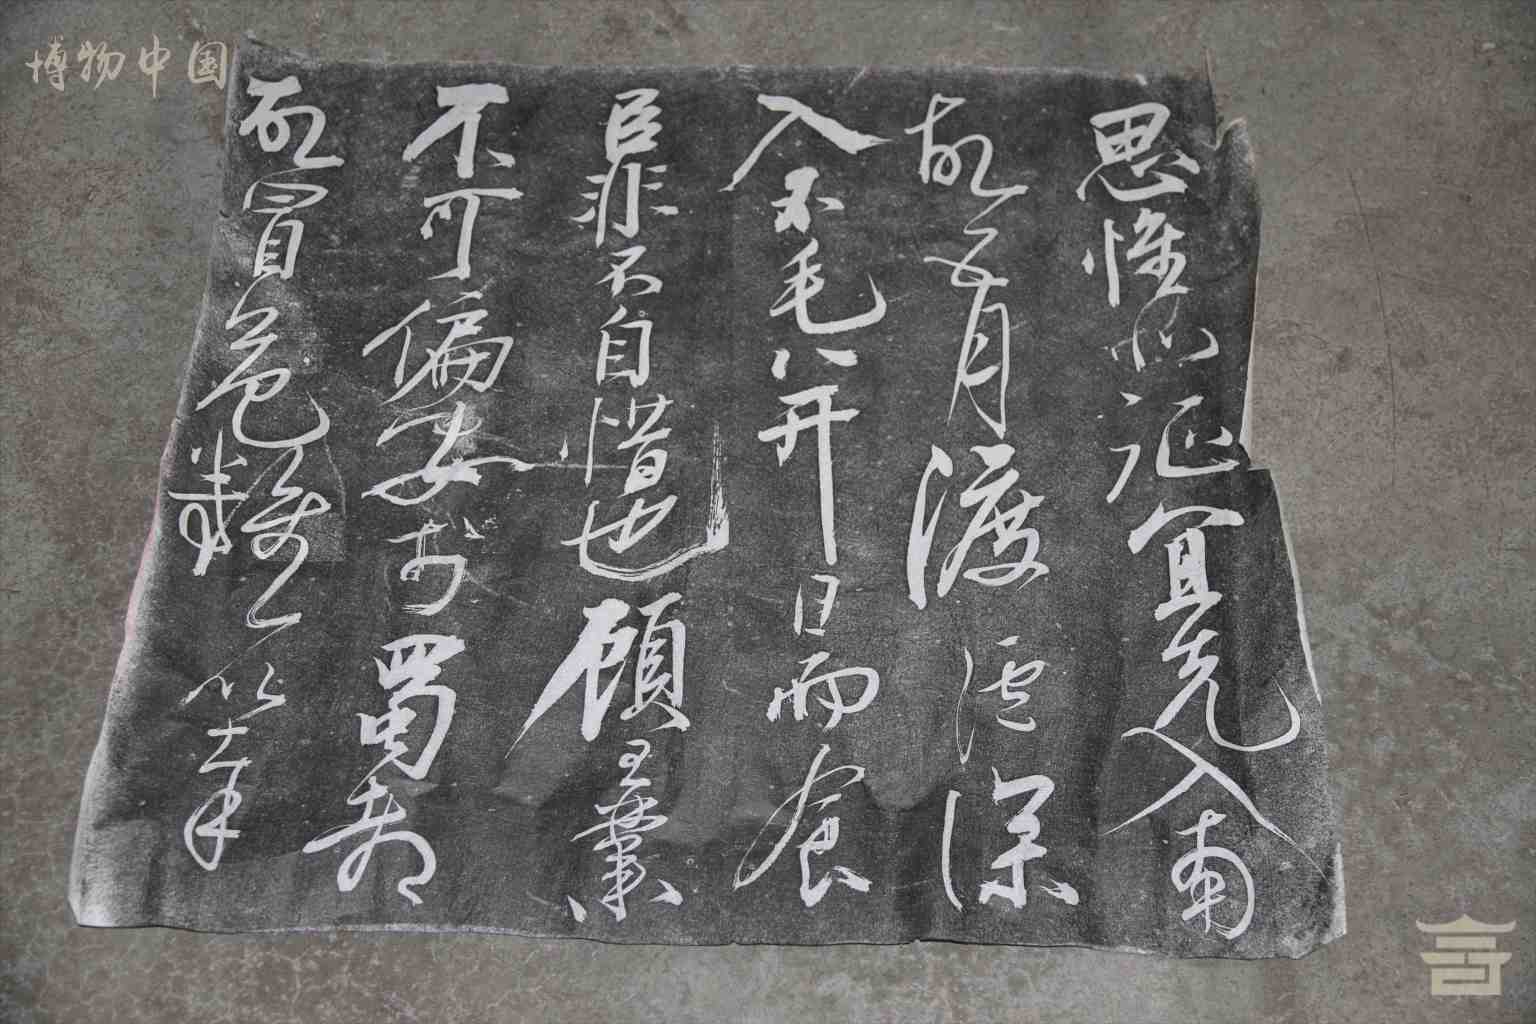 博物中国
思惟北征宜先入南
故五月渡瀘深
入不毛并日而食
臣非不自惜也顧王業
不可偏安於蜀都
故冒危難以奉